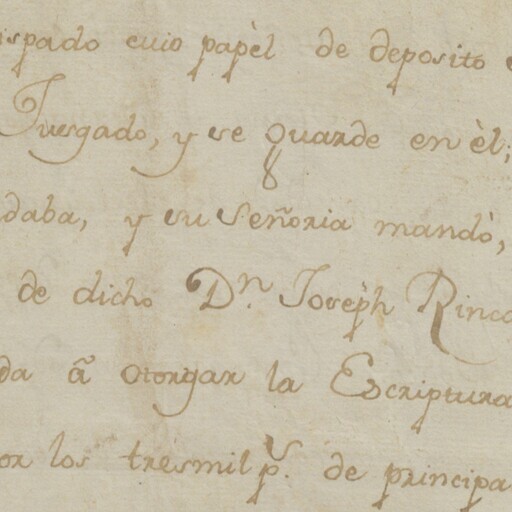 ispado cuio papèl de deposito
Jusgado, y se Guarde en èl;
daba, y su Señoria mandò,
de dicho Dn. Joseph Rinco
da â otorgar la Escriptura
or los tresmil ps. de principa